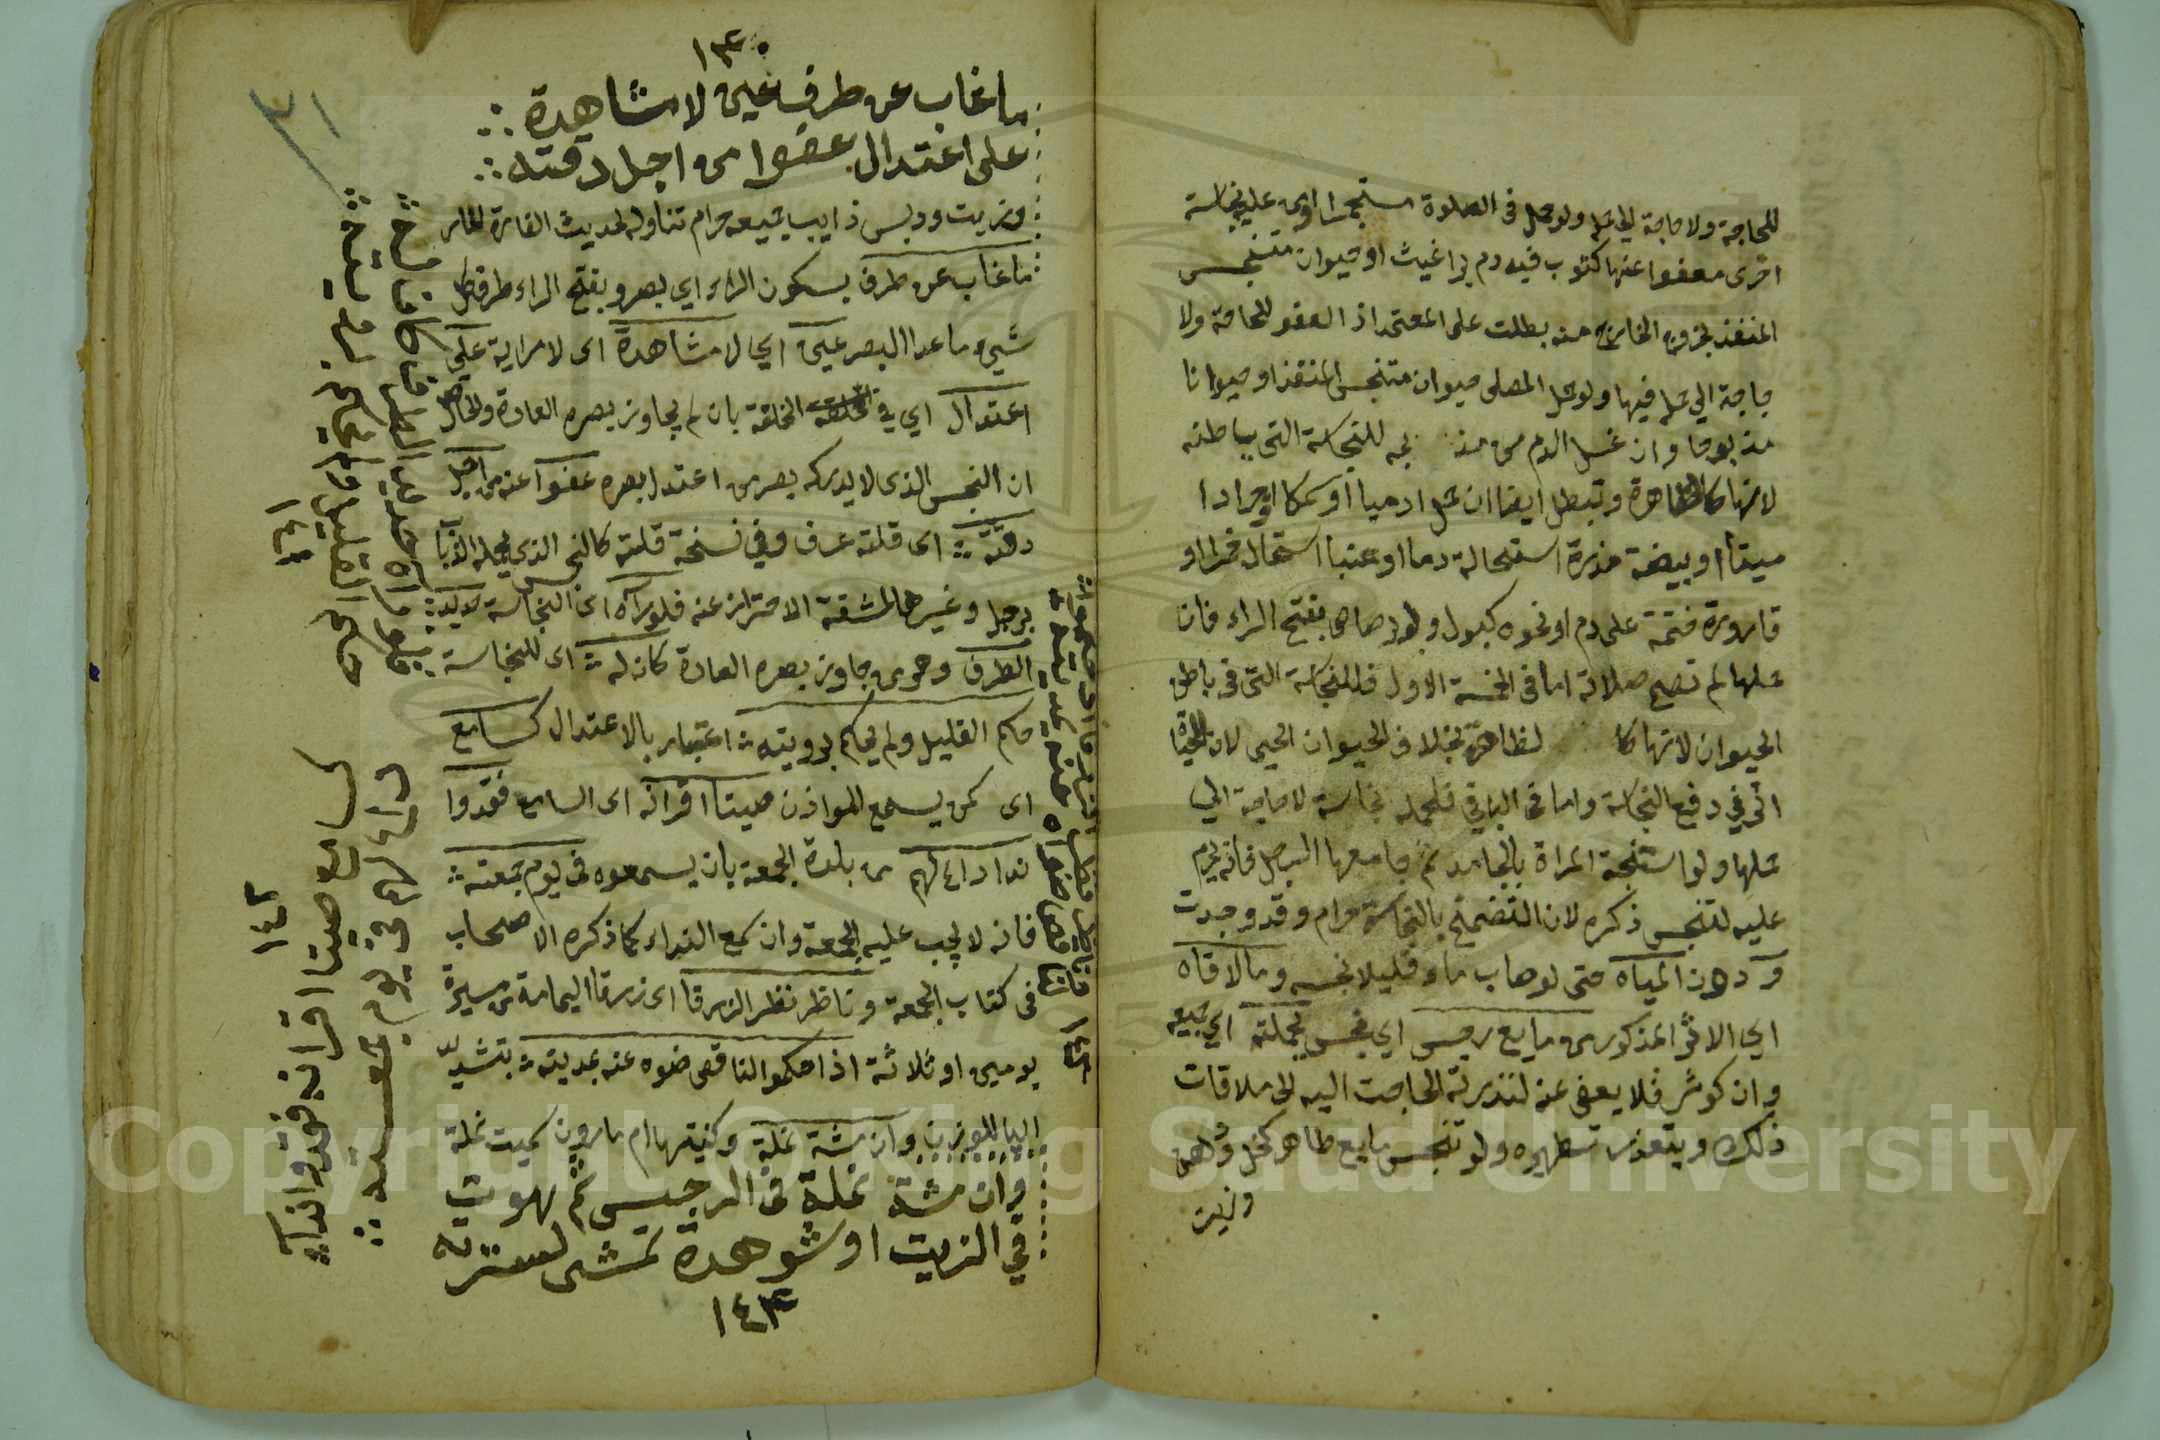 للحاجة ولا حاجة الى حمله ولو حمل في الصلوة مستجمرا او من عليه نجاسة
اخرى معفوا عنها كثوب فيه دم براغيث او حيوان متنجس
المنفذ بخروج الخارج منه بطلت على المعتمد اذ العفو للحاجة ولا
حاجة الي حمله فيها ولو حمل المصلى حيوان متنجس المنفذ او حيوانا
مذبوحا وان غسل الدم من مذبحه للنجاسة التى بباطنه
لانها كالظاهرة وتبطل ايضا ان حمل ادميا او سمكا او جرادا
ميتا او بيضة مذرة استحالة دما او عنبا استحال خمرا او
قارورة ختمة على دم او نحوه كبول ولو برصاص بفتح الراء فان
حملها لم تصح صلاته اما في الخمسة الاول فللنجاسة التى في باطن
الحيوان لانها كا لظاهرة بخلاف الحيوان الحيى لان للحياة
اثر في دفع النجاسة واما في الباقي فلحمله نجاسة لا حاجة الي
حملها ولو استنجة المراة بالجامد ثم جامعها الرجل فانه يحرم
عليه لتنجس ذكره لان التضمخ بالنجاسة حرام وقد وجدت
دون المياه حتى لو صاب ماء قليلا نجسه وما لاقاه
اي الاثر المذكور من مايع رجس اي نجس بجملته اي جميعه
وان كوثر فلا يعفى عنه لندرته الحاجت اليه الى ملاقات
ذلك ويتعذر تطهيره ولو تنجس مايع طاهر كخل ودهن
وزيت
١٣٠
٣١
ما غاب عن طرف عين لا مشاهدة
على اعتدال عفوا من اجل دقته
وزيت ودبس ذايب جميعه حرام تناوله لحديث الفارة المار
ما غاب عن طرف بسكون الراء اي بصر وبفتح الراء طرف كل
شيء ما عدا البصر عين اي لا مشاهدة اى لا مراية على
اعتدال اي في الخلقة بان لم يجاوز بصره العادة والحاصل
ان النجس الذى لا يدركه بصر من اعتدل بصره عفوا عنه من اجل
دقته اى قلته عرف وفي نسخة قلته كالنجس الذي يحمله الذباب
برجل وغيرها لمشقة الاحتراز عنه فلو راه اى النجاسة حديد
الطرف وهو من جاوز بصره العادة كان له اى للنجاسة
حكم القليل ولم يحكم برويته اعتبار بالاعتدال كسامع
اى كمن يسمع المواذن صيتا اقرانه اى السامع فقدوا
ندا داع لهم من بلدة الجمعة بان يسمعوه في يوم جمعته
فانه لا يجب عليه الجمعة وان سمع النداء كما ذكره الاصحاب
في كتاب الجمعة وناظر نظر الزرقا اى زرقا اليمامة من مسيرة
يومين او ثلاثة اذا حكموا الناقص ضوه عنه بمديته بتشديد
اليا للوزن وان مشة نملة وكنيتها ام مازون سميت نملة
وان مشة نملة في الرجس ثم هوت
في الزيت او شوهدة تمشى لسترته
١٤٣
حكم القليل ولم يحكم برويته
١٤١
كسامع صيتا اقرانه فقدوا ندا
داع لهم في يوم جمعته
١٤٢